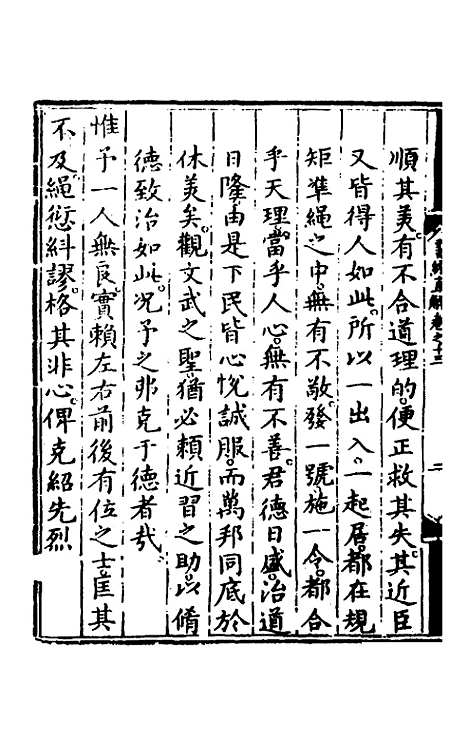 順其美有不合道理的便正救其失其近臣
又皆得人如此所以一出入一起居都在規
矩準繩之中無有不敬發一號施一令都合
乎天理當乎人心無有不善君德日盛治道
日隆由是下民皆心悅誠服而萬邦同底於
休美矣觀文武之聖猶必賴近習之助以脩
德致治如此况予之弗克于德者㦲
惟予一人無良實賴左右前後有位之士匡其
不及繩愆糾謬格其非心俾克紹先烈
書經直解卷之十二